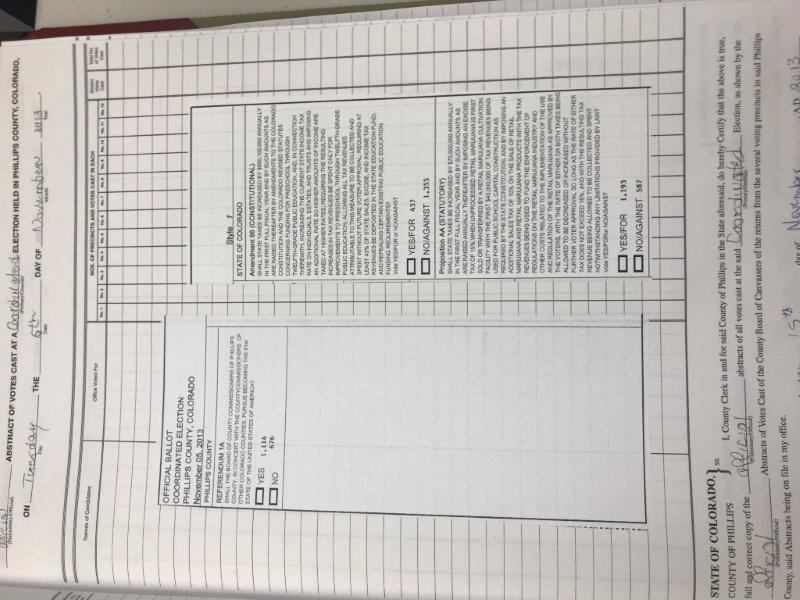 official
(Preliminary/Official)
ABSTRACT OF VOTES CAST AT A Coordinated ELECTION HELD IN PHILLIPS COUNTY, COLORADO,
(Primary/General)
ON Tuesday THE 5th DAY OF November 2013.
Day Date Month Year
Names of Candidates
Office Voted For
NOS. OF PRECINCTS AND VOTES CAST IN EACH
No. 1 No. 2 No. 3 No. 4 No. 5 No. 6 No. 7 No. 8 No. 9 No. 10 No. 11 No. 12
Absent Votes Cast
Total No. of Votes Cast
OFFICIAL BALLOT
COORDINATED ELECTION
PHILLIPS COUNTY, COLORADO
November 05, 2013
PHILLIPS COUNTY
REFERENDUM 1A
SHALL THE BOARD OF COUNTY COMMISSIONERS OF PHILLIPS
COUNTY, IN CONCERT WITH THE COUNTY COMMISSIONERS OF
OTHER COLORADO COUNTIES, PURSUE BECOMING THE 51st
STATE OF THE UNITED STATES OF AMERICA?
YES 1,114
NO 676
Style 1
STATE OF COLORADO
Amendment 66 (CONSTITUTIONAL)
SHALL STATE TAXES BE INCREASED BY $950,100,000 ANNUALLY
IN THE FIRST FULL FISCAL YEAR AND BY SUCH AMOUNTS AS
ARE RAISED THEREAFTER BY AMENDMENTS TO THE COLORADO
CONSTITUTION AND THE COLORADO REVISED STATUTES
CONCERNING FUNDING FOR PRESCHOOL THROUGH
TWELFTH-GRADE PUBLIC EDUCATION, AND, IN CONNECTION
THEREWITH, INCREASING THE CURRENT STATE INCOME TAX
RATE ON INDIVIDUALS, ESTATES, AND TRUSTS AND IMPOSING
AN ADDITIONAL RATE SO HIGHER AMOUNTS OF INCOME ARE
TAXED AT HIGHER RATES; REQUIRING THE RESULTING
INCREASES IN TAX REVENUES BE SPENT ONLY FOR
IMPROVEMENTS TO PRESCHOOL THROUGH TWELFTH-GRADE
PUBLIC EDUCATION; ALLOWING ALL TAX REVENUES
ATTRIBUTABLE TO THE MEASURE TO BE COLLECTED AND
SPENT WITHOUT FUTURE VOTER APPROVAL; REQUIRING AT
LEAST 43% OF STATE SALES, EXCISE, AND INCOME TAX
REVENUES BE DEPOSITED IN THE STATE EDUCATION FUND;
AND REPEALING CERTAIN EXISTING PUBLIC EDUCATION
FUNDING REQUIREMENTS?
Vote YES/FOR or NO/AGAINST
YES/FOR 437
NO/AGAINST 1,355
Proposition AA (STATUTORY)
SHALL STATE TAXES BE INCREASED BY $70,000,000 ANNUALLY
IN THE FIRST FULL FISCAL YEAR AND BY SUCH AMOUNTS AS
ARE RAISED ANNUALLY THEREAFTER BY IMPOSING AN EXCISE
TAX OF 15% WHEN UNPROCESSED RETAIL MARIJUANA IS FIRST
SOLD OR TRANSFERRED BY A RETAIL MARIJUANA CULTIVATION
FACILITY WITH THE FIRST $40,000,000 OF TAX REVENUES BEING
USED FOR PUBLIC SCHOOL CAPITAL CONSTRUCTION AS
REQUIRED BY THE STATE CONSTITUTION, AND BY IMPOSING AN
ADDITIONAL SALES TAX OF 10% ON THE SALE OF RETAIL
MARIJUANA AND RETAIL MARIJUANA PRODUCTS WITH THE TAX
REVENUES BEING USED TO FUND THE ENFORCEMENT OF
REGULATIONS ON THE RETAIL MARIJUANA INDUSTRY AND
OTHER COSTS RELATED TO THE IMPLEMENTATION OF THE USE
AND REGULATION OF RETAIL MARIJUANA AS APPROVED BY
THE VOTERS, WITH THE RATE OF EITHER OR BOTH TAXES BEING
ALLOWED TO BE DECREASED OR INCREASED WITHOUT
FURTHER VOTER APPROVAL SO LONG AS THE RATE OF EITHER
TAX DOES NOT EXCEED 15%, AND WITH THE RESULTING TAX
REVENUE BEING ALLOWED TO BE COLLECTED AND SPENT
NOTWITHSTANDING ANY LIMITATIONS PROVIDED BY LAW?
Vote YES/FOR or NO/AGAINST
YES/FOR 1,193
NO/AGAINST 587
STATE OF COLORADO, } ss
COUNTY OF PHILLIPS
I, County Clerk in and for said County of Phillips in the State aforesaid, do hereby Certify that the above is true,
full and correct copy of the official abstracts of all votes cast at the said Coordinated Election, as shown by the
(Preliminary/Official) (Primary/General)
official Abstracts of Votes Cast of the County Board of Canvassers of the returns from the several voting precincts in said Phillips
(Preliminary/Official)
County, said Abstracts being on file in my office.
15th day of November AD 2013